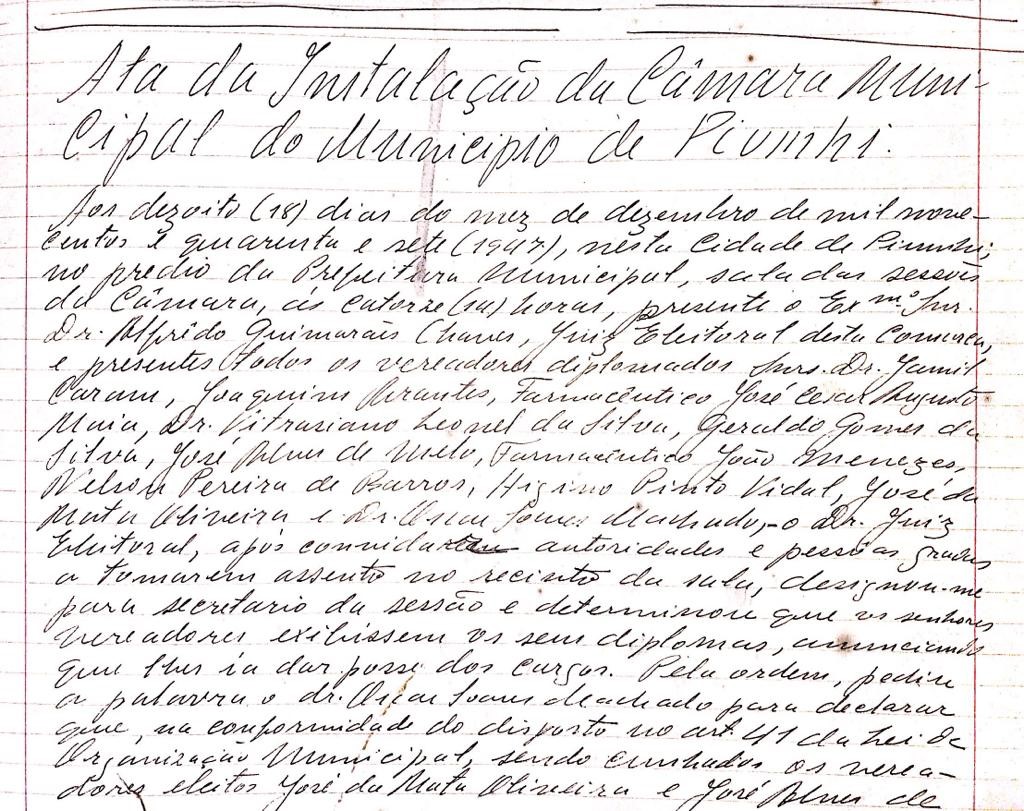 Ata da Instalação da Câmara Muni-
cipal do Municipio de Piumhi.
Aos dezoito (18) dias do mez de dezembro de mil nove-
centos e quarenta e sete (1947), nesta Cidade de Piumhi,
no predio da Prefeitura Municipal, sala das sessões
da Câmara, ás catorze (14) horas, presente o Exmº Snr.
Dr. Alfrêdo Guimarães Chaves, Juiz Eleitoral desta Comarca,
e presentes todos os vereadores diplomados Snrs. Dr. Jamil
Caram, Joaquim Arantes, Farmacêutico José Cesar Augusto
Maia, Dr. Vitrasiano Leonel da Silva, Geraldo Gomes da
Silva, José Alves de Melo, Farmacêutico João Menezes,
Nelson Pereira de Barros, Higino Pinto Vidal, José da
Mata Oliveira e Dr. Oscar Soares Machado, - o Dr. Juiz
Eleitoral, após convidar autoridades e pessôas gradas
a tomarem assento no recinto da sala, designou-me
para secretario da sessão e determinou que os senhores
vereadores exibissem os seus diplomas, anunciando
que lhes ia dar posse dos cargos. Pela ordem, pediu
a palavra o dr. Oscar Soares Machado para declarar
que, na conformidade do disposto no art. 41 da Lei de
Organização Municipal, sendo cunhados os verea-
dores eleitos José da Mata Oliveira e José Alves de